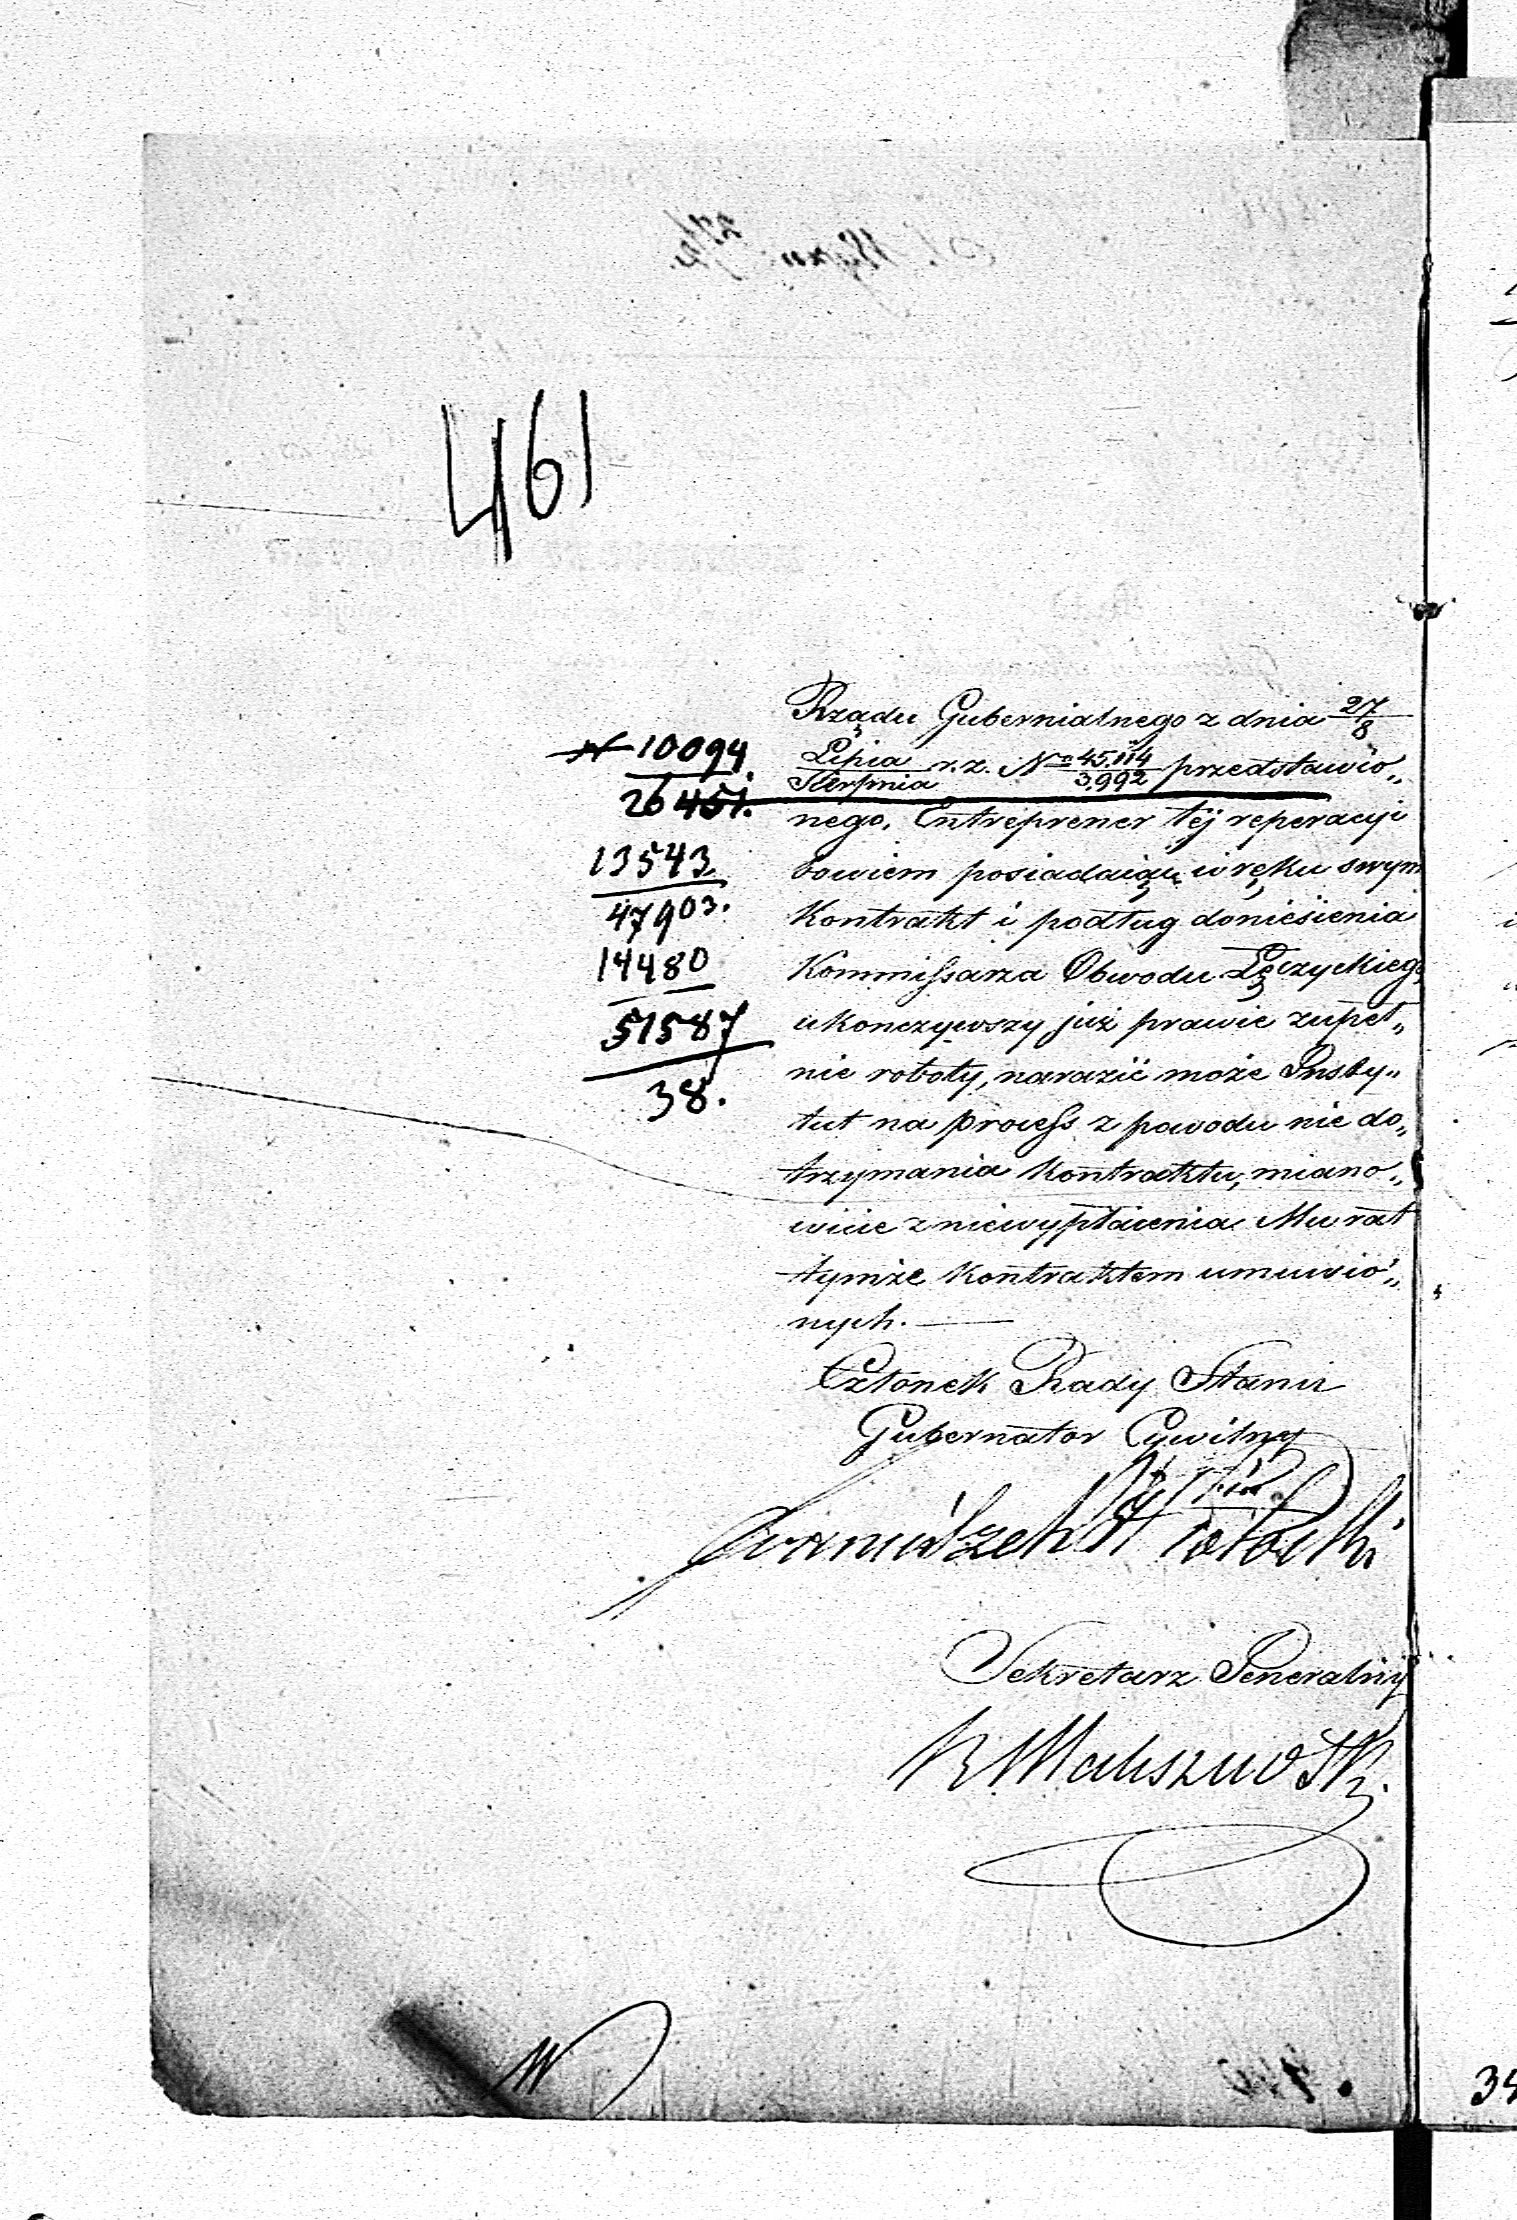 461
N 10094.
26451.
13543.
47903.
14480
51587
38.
Rządu Gubernialnego z dnia 27/8
Lipia/Sierpnia r.z. No 45,114/3,992 przedstawio„
nego. Entreprener téj reperacyi
bowiem posiadaiąc w ręku swym
Kontrakt i podług doniesienia
Kommissarza Obwodu Łęczyckiego
ukonczywszy już prawie zupeł„
nie roboty, narazić może Insty„
tut na process z powodu nie do„
trzymania Kontraktu, miano„
wicie z niewypłacenia Mu rat
tymże Kontraktem umuwio„
nych.
Członek Rady Stanu
Gubernator Cywilny
Sekretarz Generalny